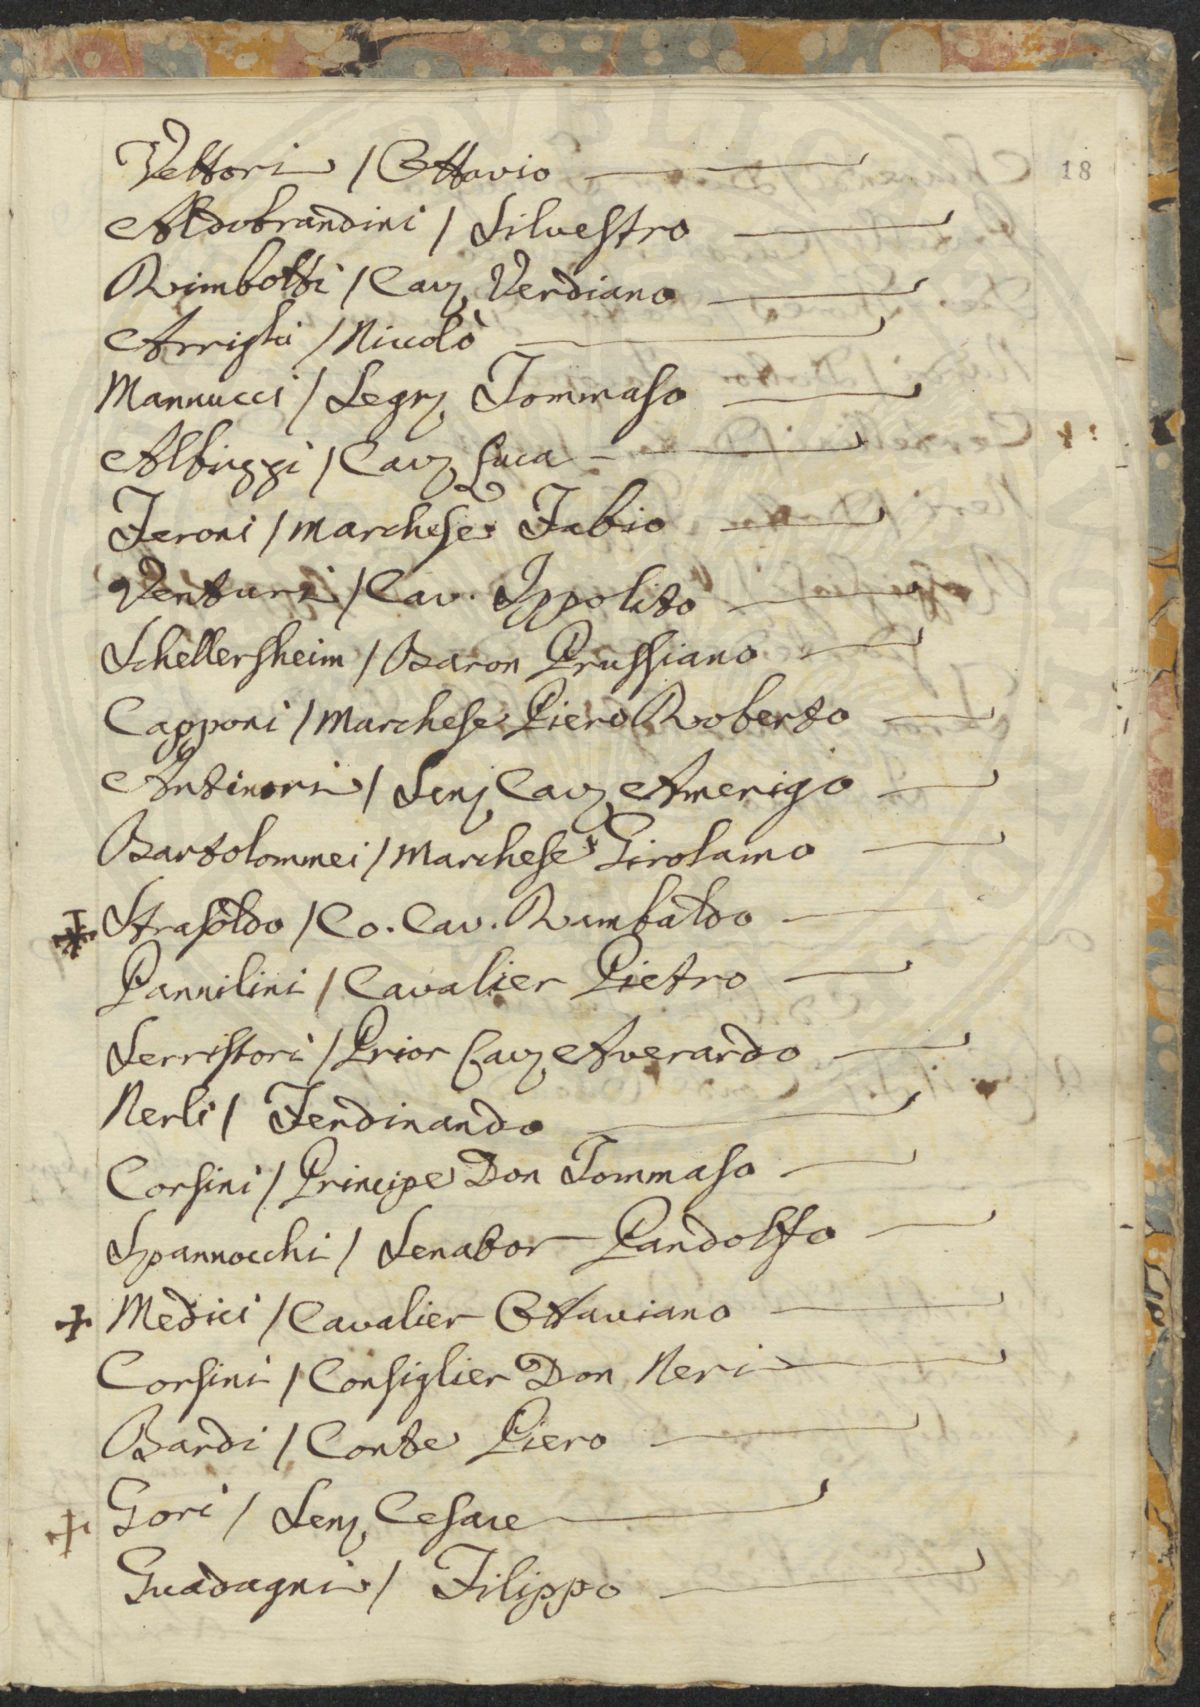 18
Vettori / Ottavio
Aldobrandini / Silvestro
Rimbotti / Cav.ʳ Verdiano
Arrighi / Niccolò
Mannucci / Segr.ᵒ Tommaso
Albizzi / Cav.ʳ Luca
Feroni / Marchese Fabio
Venturi / Cav. Ippolito
Schellersheim / Baron Prussiano
Capponi / Marchese Piero Roberto
Antinori / Sen.ʳ Cav.ʳ Amerigo
Bartolommei / Marchese Girolamo
Strasoldo / Co. Cav. Rambaldo
Pannilini / Cavalier Pietro
Serristori / Prior Cav.ʳ Averardo
Nerli / Ferdinando
Corsini / Principe Don Tommaso
Spannocchi / Senator Pandolfo
Medici / Cavalier Ottaviano
Corsini / Consiglier Don Neri
Bardi / Conte Piero
Gori / Sen.ʳ Cesare
Guadagni / Filippo